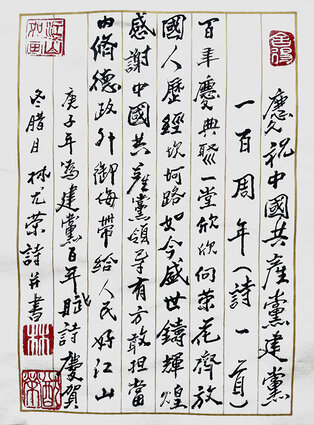 慶祝中國共產黨建黨
一百周年(詩一首)
百年慶典聚一堂欣欣向荣花齊放
國人歷經坎坷路如今盛世鑄輝煌
感謝中國共產黨領导有方敢担當
内脩德政外御侮帶給人民好江山
庚子年為建黨百年賦詩慶賀
冬腊月 林尤荣詩并書
江山如画